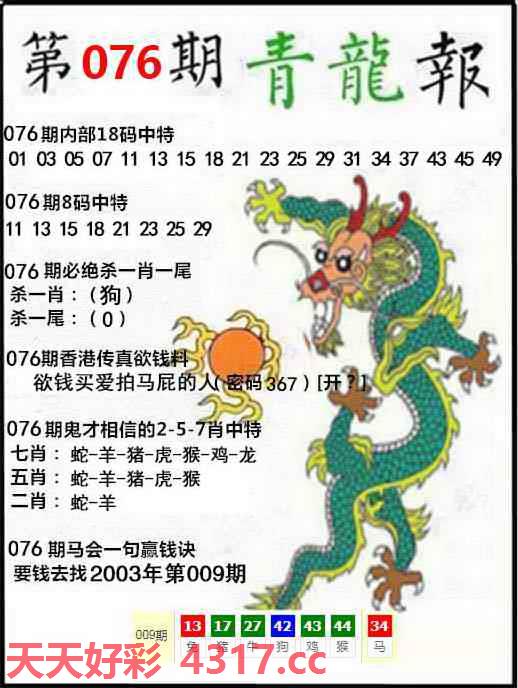 第076期青龍報
076期内部18码中特
01 03 05 07 11 13 15 18 21 23 25 29 31 34 37 43 45 49
076期8码中特
11 13 15 18 21 23 25 29
076期必绝杀一肖一尾
杀一肖：（狗）
杀一尾：（0）
076期香港传真欲钱料
欲钱买爱拍马屁的人(密码367)[开?]
076期鬼才相信的2-5-7肖中特
七肖：蛇-羊-猪-虎-猴-鸡-龙
五肖：蛇-羊-猪-虎-猴
二肖：蛇-羊
076期马会一句赢钱诀
要钱去找2003年第009期
009期 13 17 27 42 43 44 34
兔 猪 牛 狗 鸡 猴 马
天天好彩 4317.cc